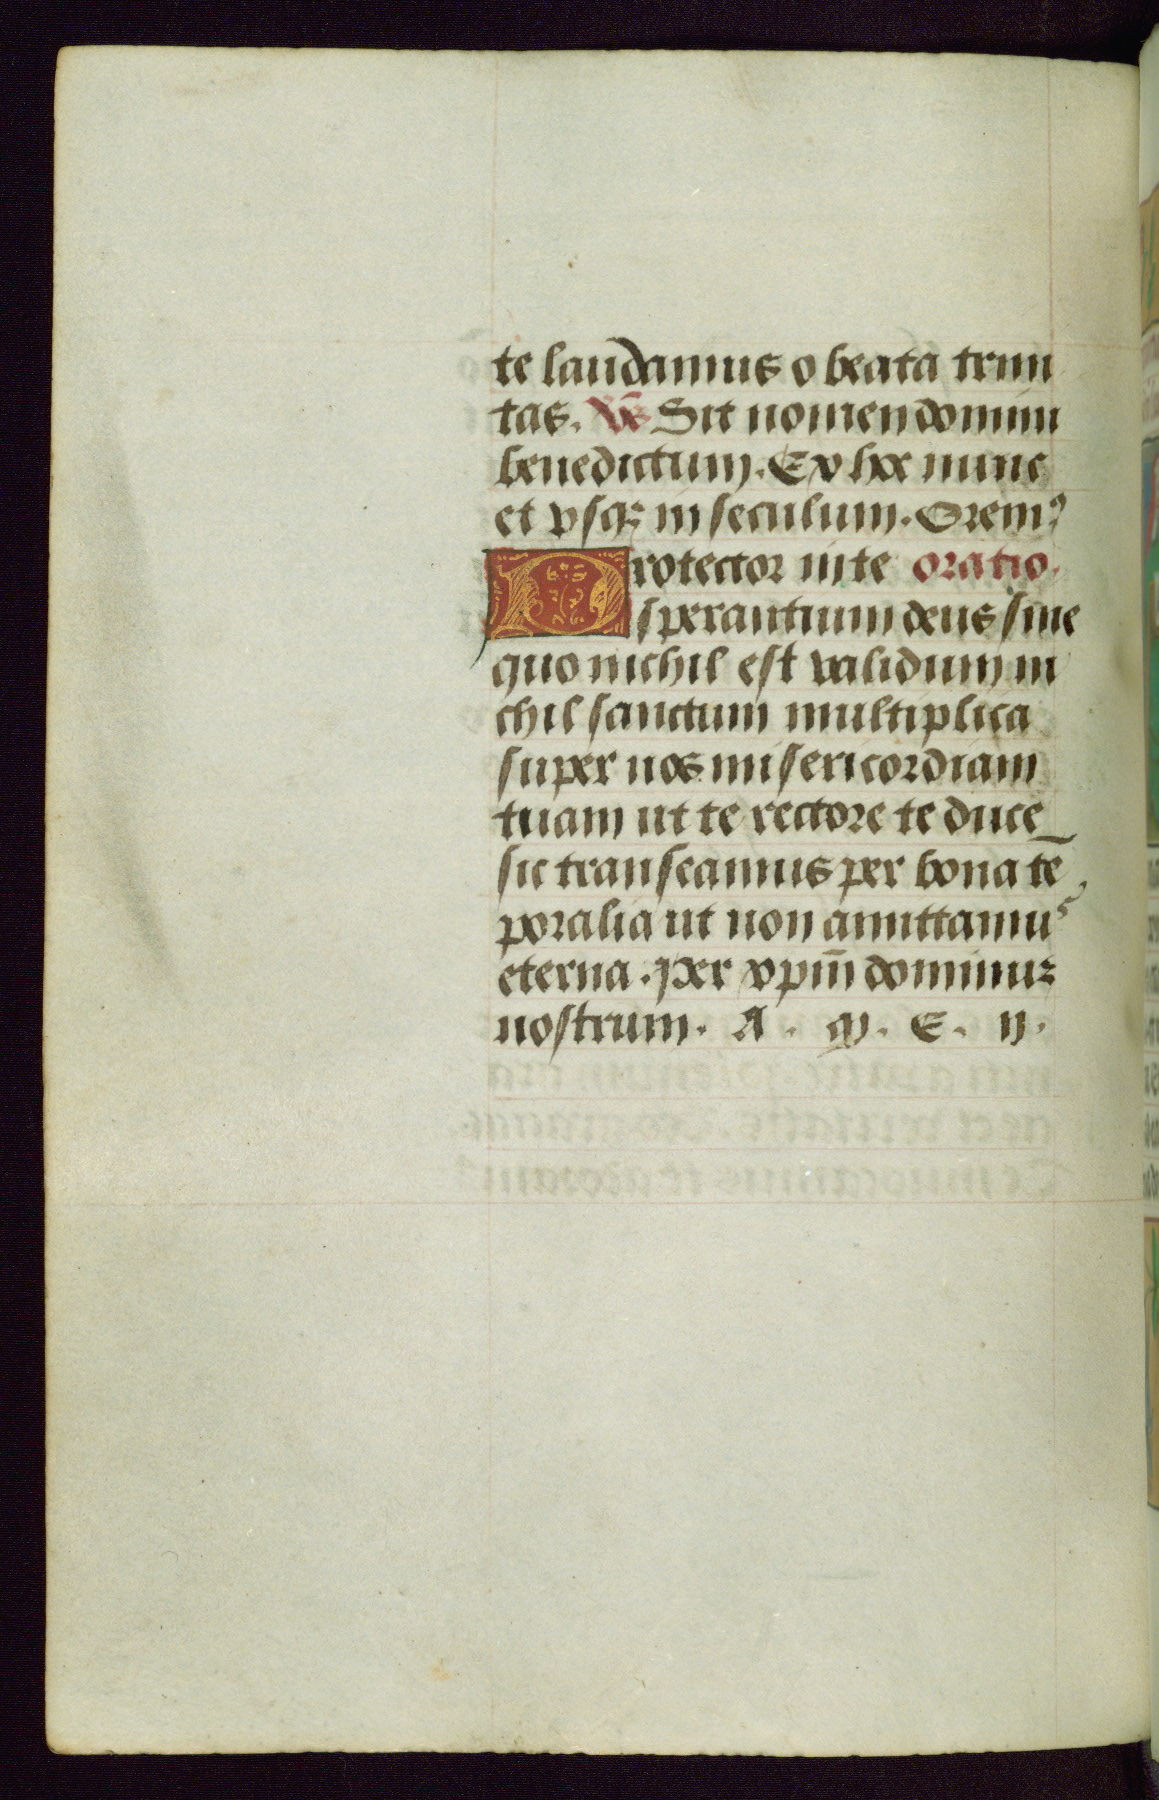 te laudamus o beata trini
tas. V̄s Sit nomen domini
benedictum. Ex hoc nunc
et vsq; in seculum. Orem⁹
Protector in te oratio.
sperantium deus sine
quo nichil est validum ni
chil sanctum multiplica
super nos misericordiam
tuam ut te rectore te duce
sic transeamus per bona tē
poralia ut non amittamus
eterna. Per xpm̄ dominuz
nostrum. A. M. E. N.